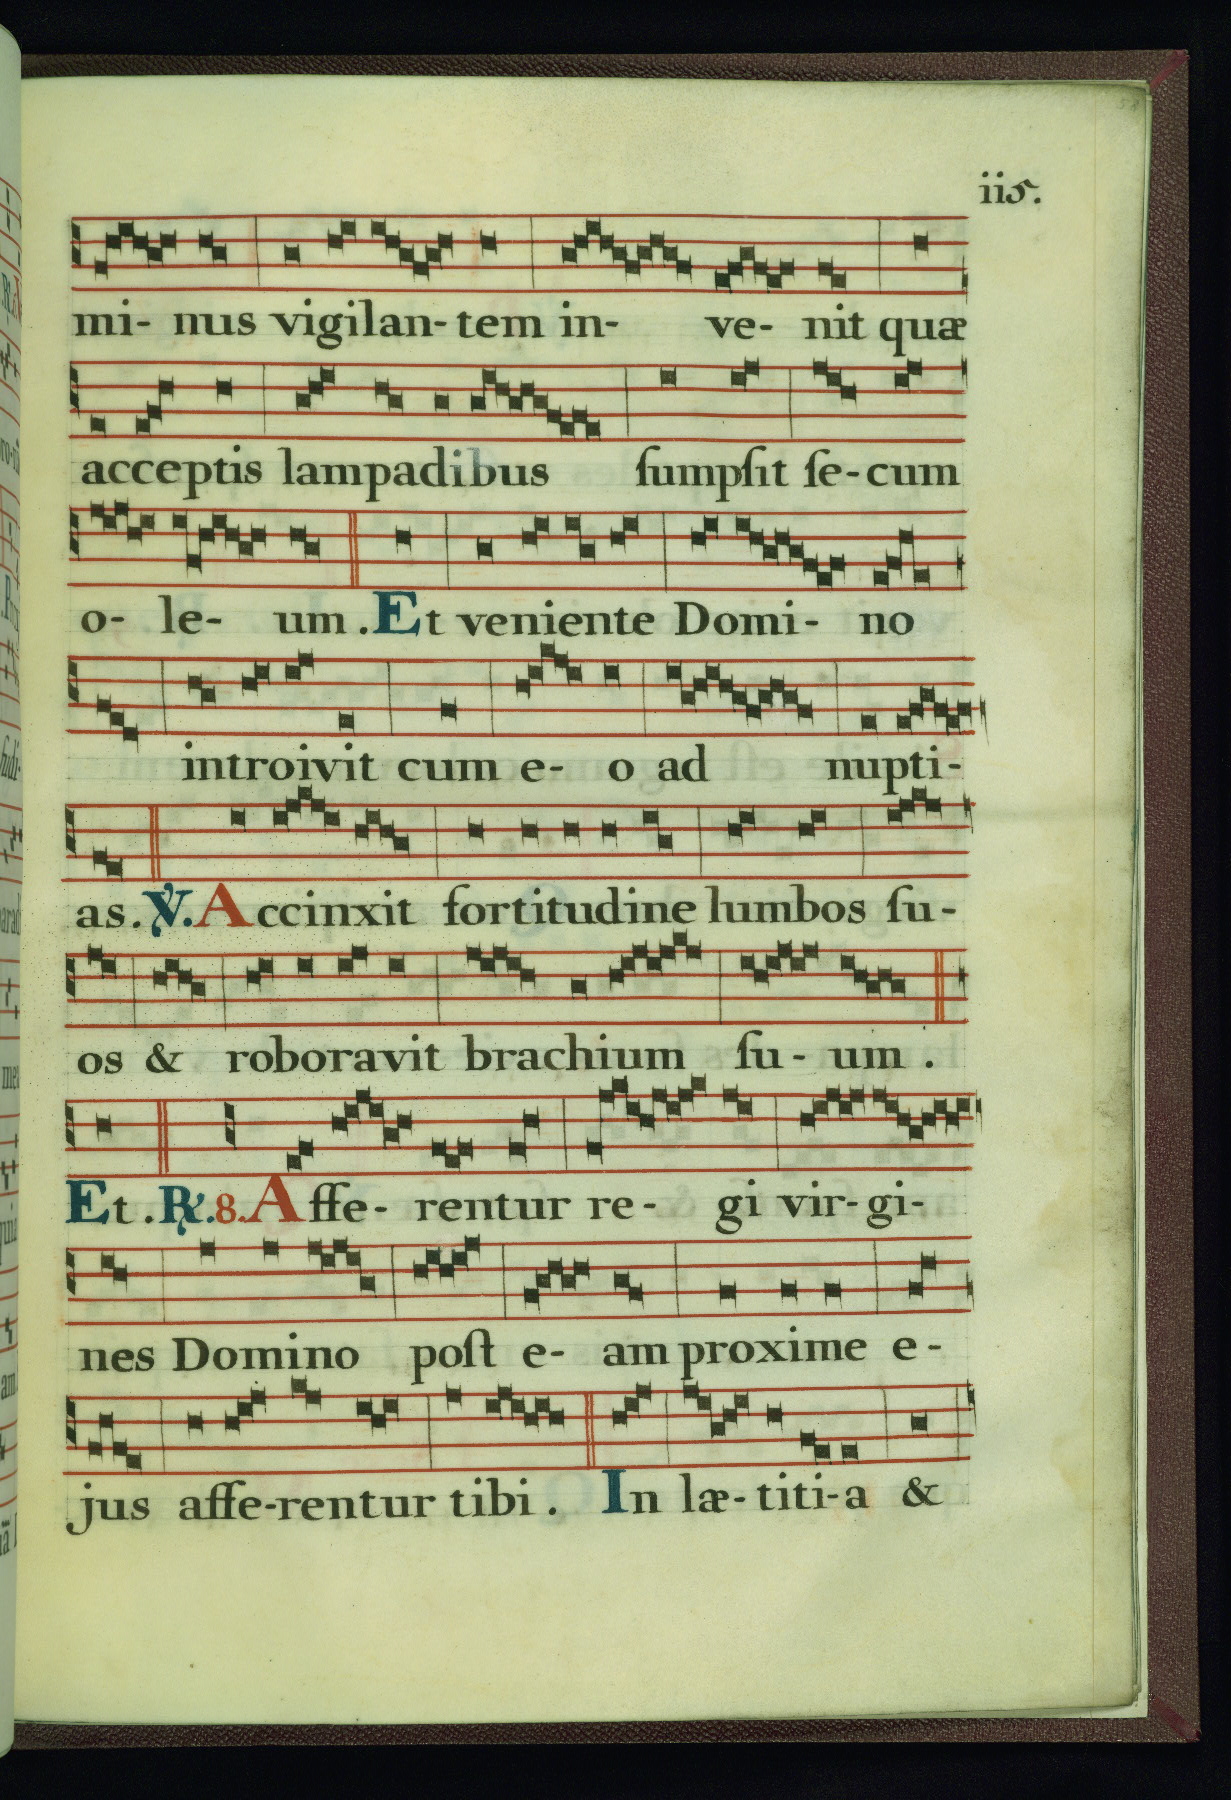 ii5.
mi- nus vigilan-tem in- ve- nit quæ
acceptis lampadibus ſumpſit ſe-cum
o- le- um. Et veniente Domi- no
introivit cum e- o ad nupti-
as. ℣. Accinxit fortitudine lumbos ſu-
os & roboravit brachium ſu- um.
Et. ℟. 8. Affe- rentur re- gi vir-gi-
nes Domino poſt e- am proxime e-
jus affe-rentur tibi. In læ-titi-a &